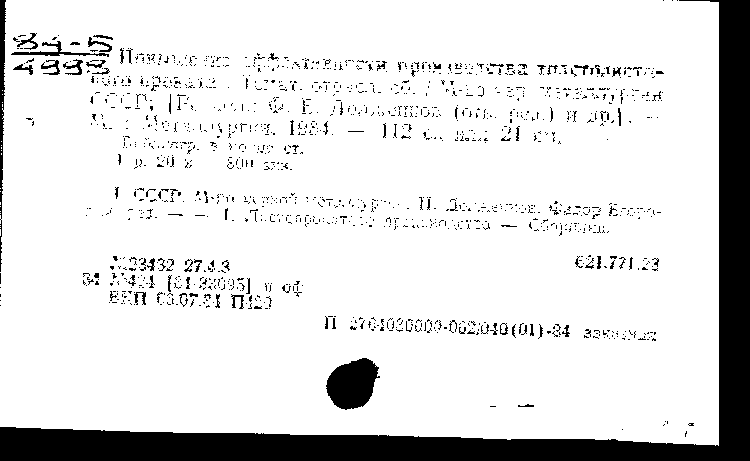 84-5
4998
Повышение эффективности производства толстолисто-
вого проката : Темат. отрасл. сб. / М-во чер. металлургии
СССР; [Ред. Ф. Е. Долженков (отв. ред.) и др.]. —
М. : Металлургия, 1984. — 112 с. ил.; 21 см.
Библиогр. в конце ст.
1 р. 20 к. 800 экз.
1. СССР. М-во черной металлургии. II. Долженков, Федор Егоро-
вич, ред. — — 1. Листопрокатное производство — Сборники.
№23432 27.4.3
621.771.23
84 №424 [84-33095] п оф
ВКП 06.07.84 П420
П 2704030000-062/040(01)-84 заказных